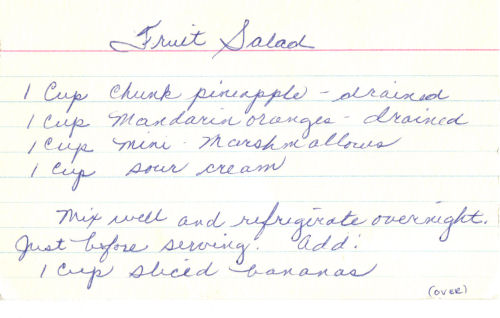 Fruit Salad
1 Cup chunk pineapple - drained
1 Cup Mandarin oranges - drained
1 Cup mini - Marshmallows
1 Cup sour cream
Mix well and refrigirate overnight.
Just before serving. add:
1 Cup sliced bananas
(over)